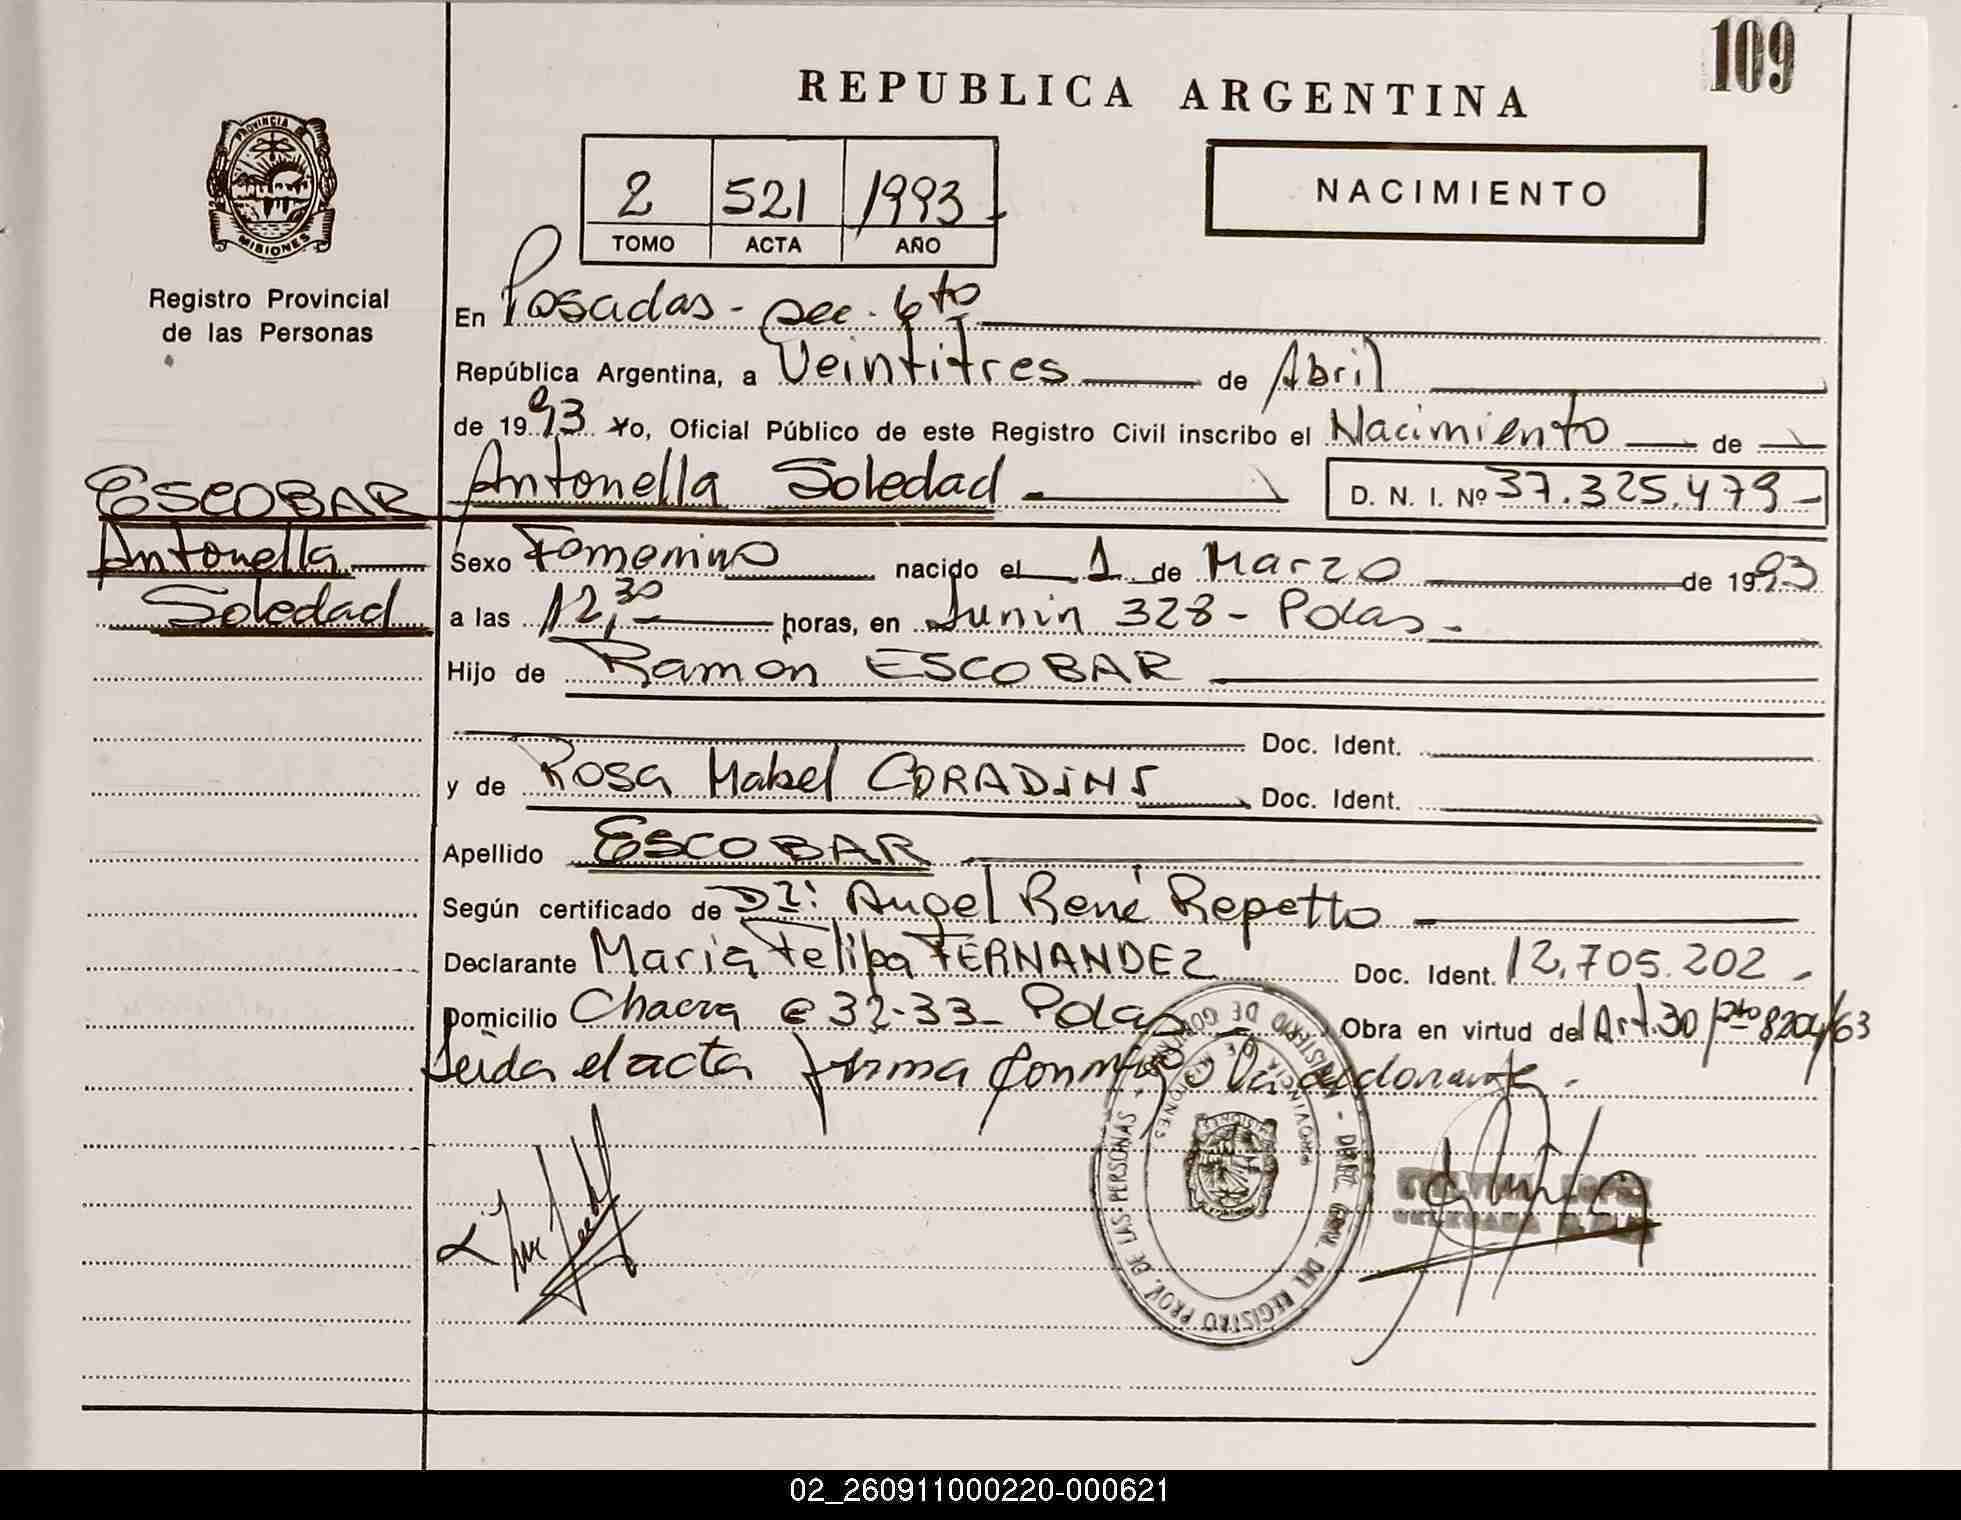 109
REPUBLICA ARGENTINA
PROVINCIA DE MISIONES
Registro Provincial
de las Personas
2 521 1993
TOMO ACTA AÑO
NACIMIENTO
En Posadas - sec. 6to
República Argentina, a Veintitres de Abril
de 1993 Yo, Oficial Público de este Registro Civil inscribo el Nacimiento de
Antonella Soledad D. N. I. Nº 37.325.479-
ESCOBAR
Antonella
Soledad
Sexo Femenino nacido el 1 de Marzo de 1993
a las 12,30 horas, en Junin 328 - Pdas -
Hijo de Ramon ESCOBAR
Doc. Ident.
y de Rosa Mabel Doc. Ident.
Apellido ESCOBAR
Según certificado de Dr: Angel René Repetto
Declarante Maria Felipa FERNANDEZ Doc. Ident. 12.705.202 -
Domicilio Chacra 32-33 - Pdas - Obra en virtud del Art. 30 8204/63
Leida el acta firma conmigo la declarante.
MINISTERIO DE GOBIERNO - DEL REGISTRO PROV. DE LAS PERSONAS
PROVINCIA DE MISIONES
02_260911000220-000621